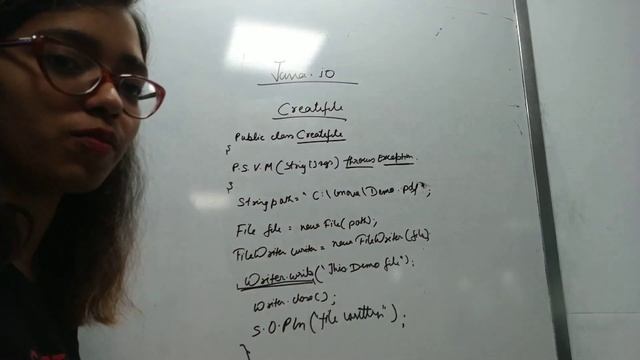 Java.io
Createfile
Public class Createfile
{
P.S.V.M (String[] args) throws Exception
{
String path = "C:\\Demo.pdf";
File file = new File(path);
FileWriter writer = new FileWriter(file)
Writer.write("This Demo file");
Writer.close();
S.O.Pln("file written");
}